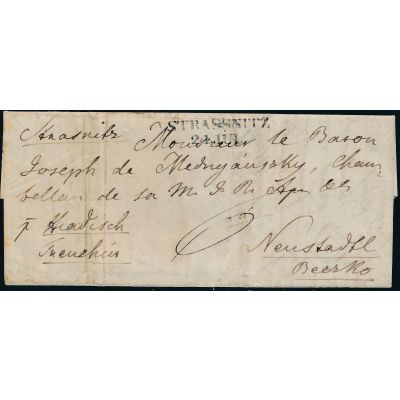 STRASSNITZ
24. JUL
Strasnitz
Monsieur le Baron
Joseph de Mednyánszky, cham-
bellan de sa M. I. R. Ap. &
p Hradisch
Trenchin
Neustadtl
Beczko